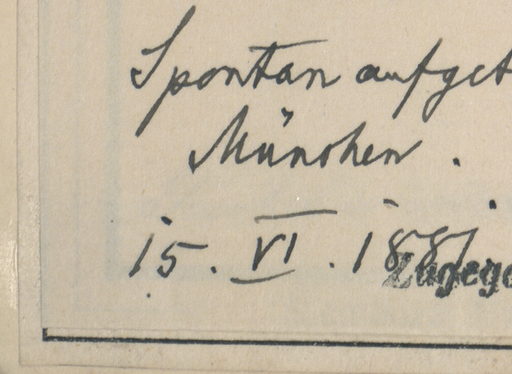 Spontan aufget
München.
15. VI. 1887.
Zugege